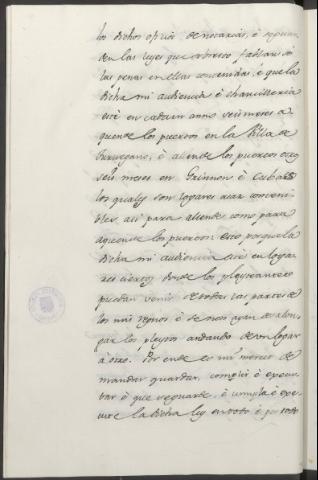 los dichos ofiçios de notarias, é
en las leyes que sobresto fablan só
las penas en ellas contenidas, é que la
dicha mi audiencia é chancilleria
esté en cada un anno seis meses a
quende los puertos en la Villa de
é allende los puertos otros
seis meses en é
los quales son logares asaz conveni
bles, asi para allende como para
aquende los puertos: esto porque la
dicha mi audiencia esté en logar
res ciertos donde los pleyteantes
puedan venir de todas las partes de
los mis regnos é de non ayan de alon
gar los pleytos andando de un logar
á otro. Por ende es mi merced de
mandar guardar, complir é execu
tar é que se guarde, é cumpla é exe
cute la dicha ley en todo é por todo